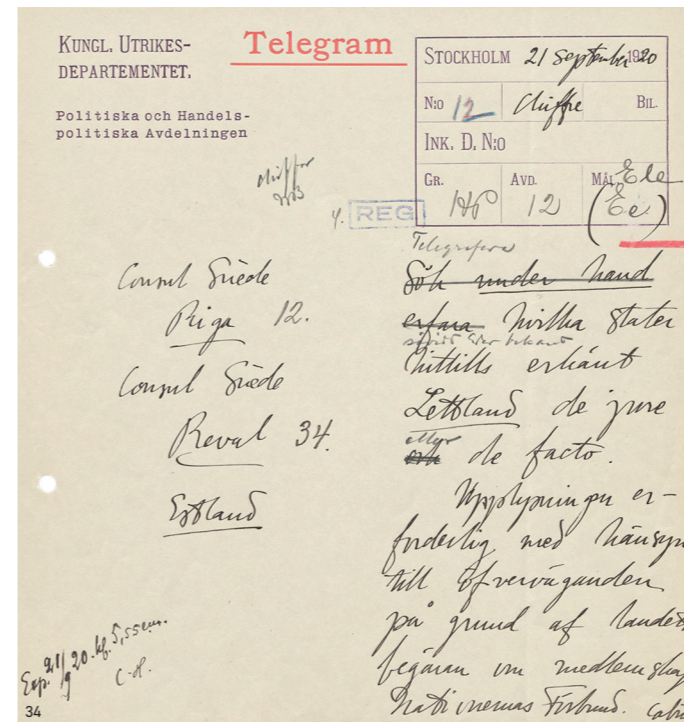 KUNGL. UTRIKES-
DEPARTEMENTET.
Telegram
Politiska och Handels-
politiska Avdelningen
STOCKHOLM 21 September 1920
N:o 12 Chiffre BIL.
INK. D. N:o
GR. HP AVD. 12 MÅL Ele
(Ee)
REG
Consul Suède
Riga 12.
Consul Suède
Reval 34.
Estland
Telegrafera
Sök under hand
erfara hvilka stater
såvidt Eder bekant
hittills erkänt
Lettland de jure
eller
och de facto.
Upplysningen er-
forderlig med hänsyn
till öfverväganden
på grund af landets
begäran om medlemskap
Nationernas Förbund.
Exp. 21/9 20. kl. 5,55 em.
C-H.
34